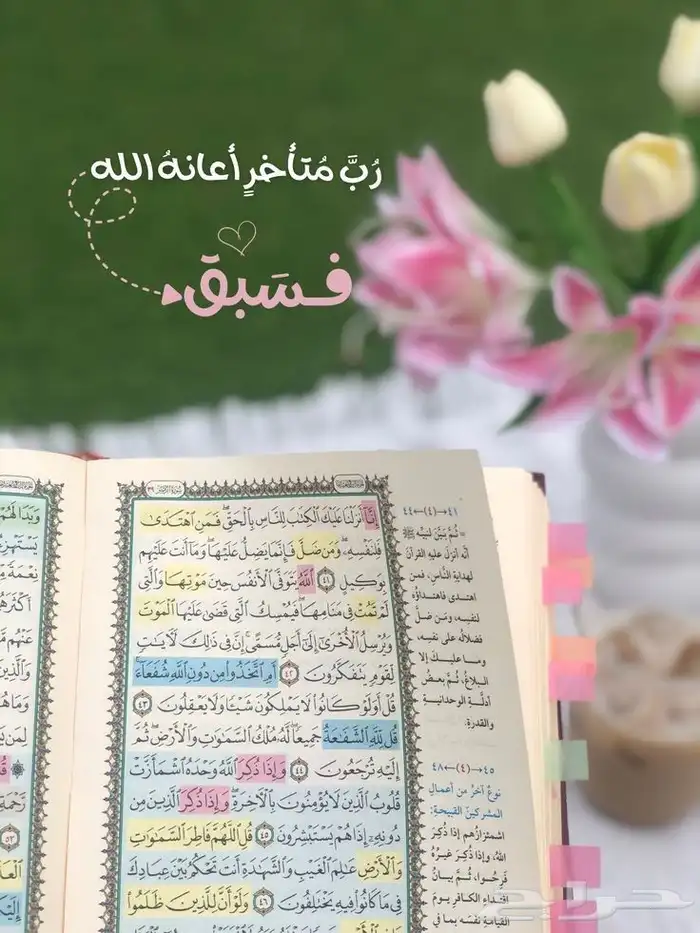 رُبَّ مُتأخرٍ أعانهُ الله
فسَبق
سُورَةُ الزُّمَرِ ٣٩
إِنَّآ أَنزَلْنَا عَلَيْكَ ٱلْكِتَٰبَ لِلنَّاسِ بِٱلْحَقِّ ۖ فَمَنِ ٱهْتَدَىٰ
فَلِنَفْسِهِۦ ۖ وَمَن ضَلَّ فَإِنَّمَا يَضِلُّ عَلَيْهَا ۖ وَمَآ أَنتَ عَلَيْهِم
بِوَكِيلٍ ٤١ ٱللَّهُ يَتَوَفَّى ٱلْأَنفُسَ حِينَ مَوْتِهَا وَٱلَّتِى
لَمْ تَمُتْ فِى مَنَامِهَا ۖ فَيُمْسِكُ ٱلَّتِى قَضَىٰ عَلَيْهَا ٱلْمَوْتَ
وَيُرْسِلُ ٱلْأُخْرَىٰٓ إِلَىٰٓ أَجَلٍ مُّسَمًّى ۚ إِنَّ فِى ذَٰلِكَ لَءَايَٰتٍ
لِّقَوْمٍ يَتَفَكَّرُونَ ٤٢ أَمِ ٱتَّخَذُوا۟ مِن دُونِ ٱللَّهِ شُفَعَآءَ ۚ
قُلْ أَوَلَوْ كَانُوا۟ لَا يَمْلِكُونَ شَيْـًٔا وَلَا يَعْقِلُونَ ٤٣
قُل لِّلَّهِ ٱلشَّفَٰعَةُ جَمِيعًا ۖ لَّهُۥ مُلْكُ ٱلسَّمَٰوَٰتِ وَٱلْأَرْضِ ۖ ثُمَّ
إِلَيْهِ تُرْجَعُونَ ٤٤ وَإِذَا ذُكِرَ ٱللَّهُ وَحْدَهُ ٱشْمَأَزَّتْ
قُلُوبُ ٱلَّذِينَ لَا يُؤْمِنُونَ بِٱلْءَاخِرَةِ ۖ وَإِذَا ذُكِرَ ٱلَّذِينَ مِن
دُونِهِۦٓ إِذَا هُمْ يَسْتَبْشِرُونَ ٤٥ قُلِ ٱللَّهُمَّ فَاطِرَ ٱلسَّمَٰوَٰتِ
وَٱلْأَرْضِ عَٰلِمَ ٱلْغَيْبِ وَٱلشَّهَٰدَةِ أَنتَ تَحْكُمُ بَيْنَ عِبَادِكَ
فِى مَا كَانُوا۟ فِيهِ يَخْتَلِفُونَ ٤٦ وَلَوْ أَنَّ لِلَّذِينَ ظَلَمُوا۟
٤١←(٤)→٤٤
= ثُمَّ بَيَّنَ لنبيِّه ﷺ
أنَّه أنزلَ عليه القرآنَ
لهدايةِ النَّاسِ، فمن
اهتدى فاهتداؤه
لنفسِه، ومن ضلَّ
فضلالُه على نفسِه،
وما عليك إلا
البلاغُ، ثُمَّ بعضُ
أدلَّةِ الوحدانيةِ
والقدرةِ.
٤٥←(٤)→٤٨
نوعٌ آخرُ من أعمالِ
المشركينَ القبيحةِ:
اشمئزازُهم إذا ذُكِرَ
اللهُ، وإذا ذُكِرَ غيرُه
فَرِحُوا، ثُمَّ بيانُ
افتداءِ الكافرِ يومَ
القيامةِ نفسَه بما في
حراج